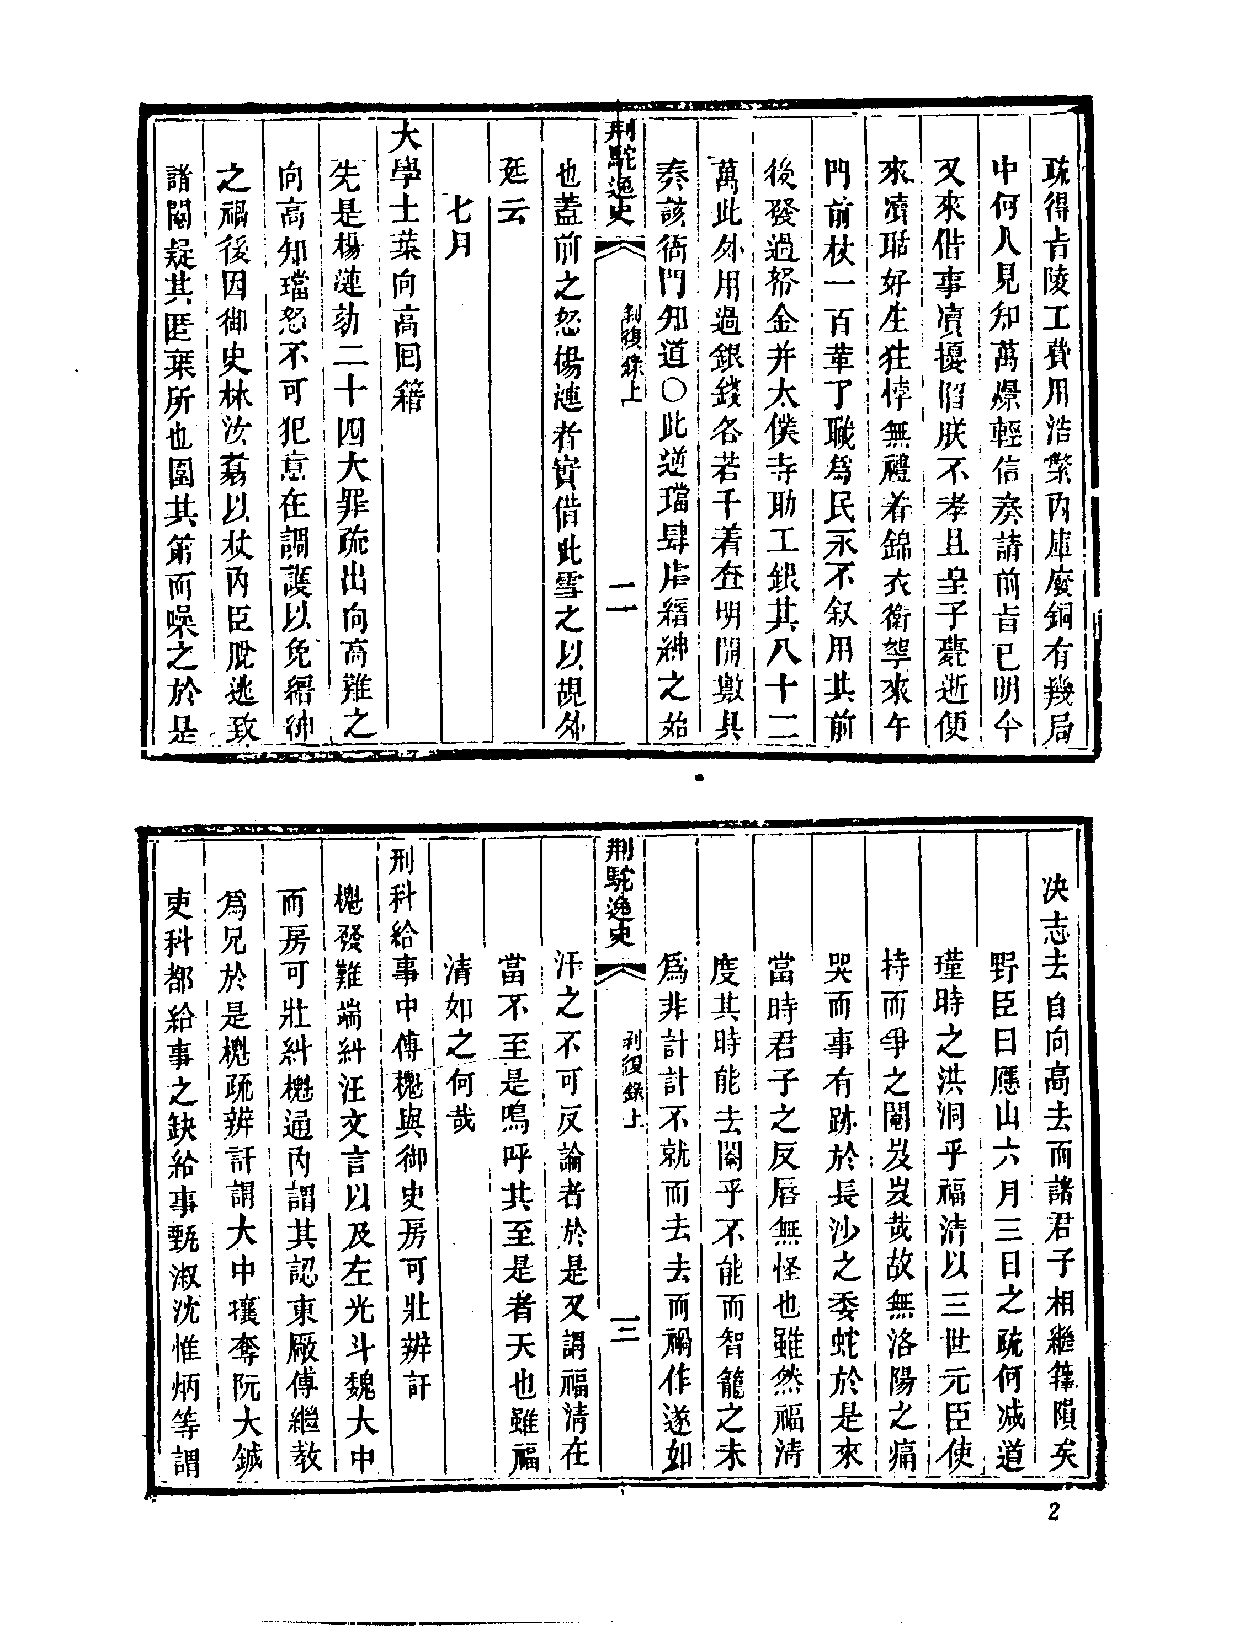 疏得旨陵工費用浩繁內庫廢銅有幾局
中何人見知萬燝輕信奏請前旨已明今
又來借事瀆擾陷朕不孝且皇子薨逝便
來瀆聒好生狂悖無禮着錦衣衛拏來午
門前杖一百革了職爲民永不叙用其前
後發過帑金并太僕寺助工銀共八十二
萬此外用過銀錢各若干着查明開數具
奏該衙門知道○此逆璫肆虐縉紳之始
荆駝逸史
剥復錄上
二
也蓋前之怒楊漣者實借此雪之以覘外
廷云
七月
大學士葉向高回籍
先是楊漣劾二十四大罪疏出向高難之
向高知璫怒不可犯意在調護以免縉紳
之禍後因御史林汝翥以杖內臣脫逃致
諸閹疑其匿葉所也圍其第而噪之於是
决志去自向高去而諸君子相繼籜隕矣
野臣曰應山六月三日之疏何减道
瑾時之洪洞乎福清以三世元臣使
持而爭之閹岌岌哉故無洛陽之痛
哭而事有跡於長沙之委蛇於是來
當時君子之反唇無怪也雖然福清
度其時能去閹乎不能而智籠之未
爲非計計不就而去去而禍作遂如
荆駝逸史
剥復錄上
三
汗之不可反論者於是又謂福清在
當不至是嗚呼其至是者天也雖福
清如之何哉
刑科給事中傅櫆與御史房可壯辨訐
櫆發難端糾汪文言以及左光斗魏大中
而房可壯糾櫆通內謂其認東廠傅繼教
爲兄於是櫆疏辨訐謂大中攘奪阮大鋮
吏科都給事之缺給事甄淑沈惟炳等謂
2